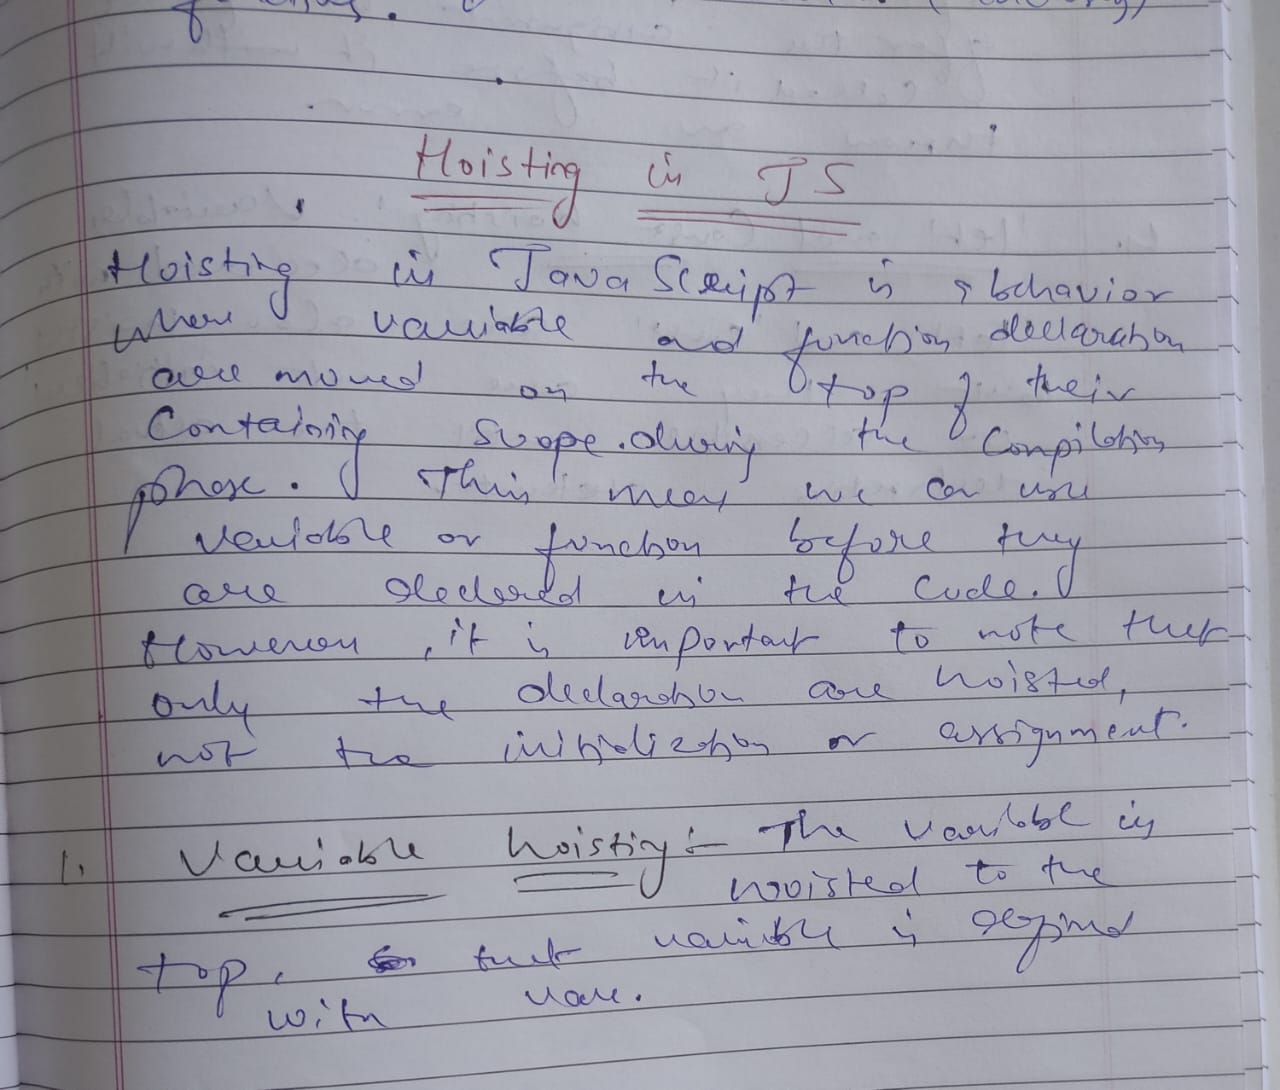 Hoisting in JS
Hoisting in JavaScript is a behavior
where variable and function declaration
are moved on the top of their
Containing Scope. during the Compilation
phase. This means we can use
variable or function before they
are declared in the Code.
However, it is important to note that
only the declaration are hoisted,
not the initialization or assignment.
1. Variable hoisting :- The variable is
hooisted to the
top, that variable is defined
with var.